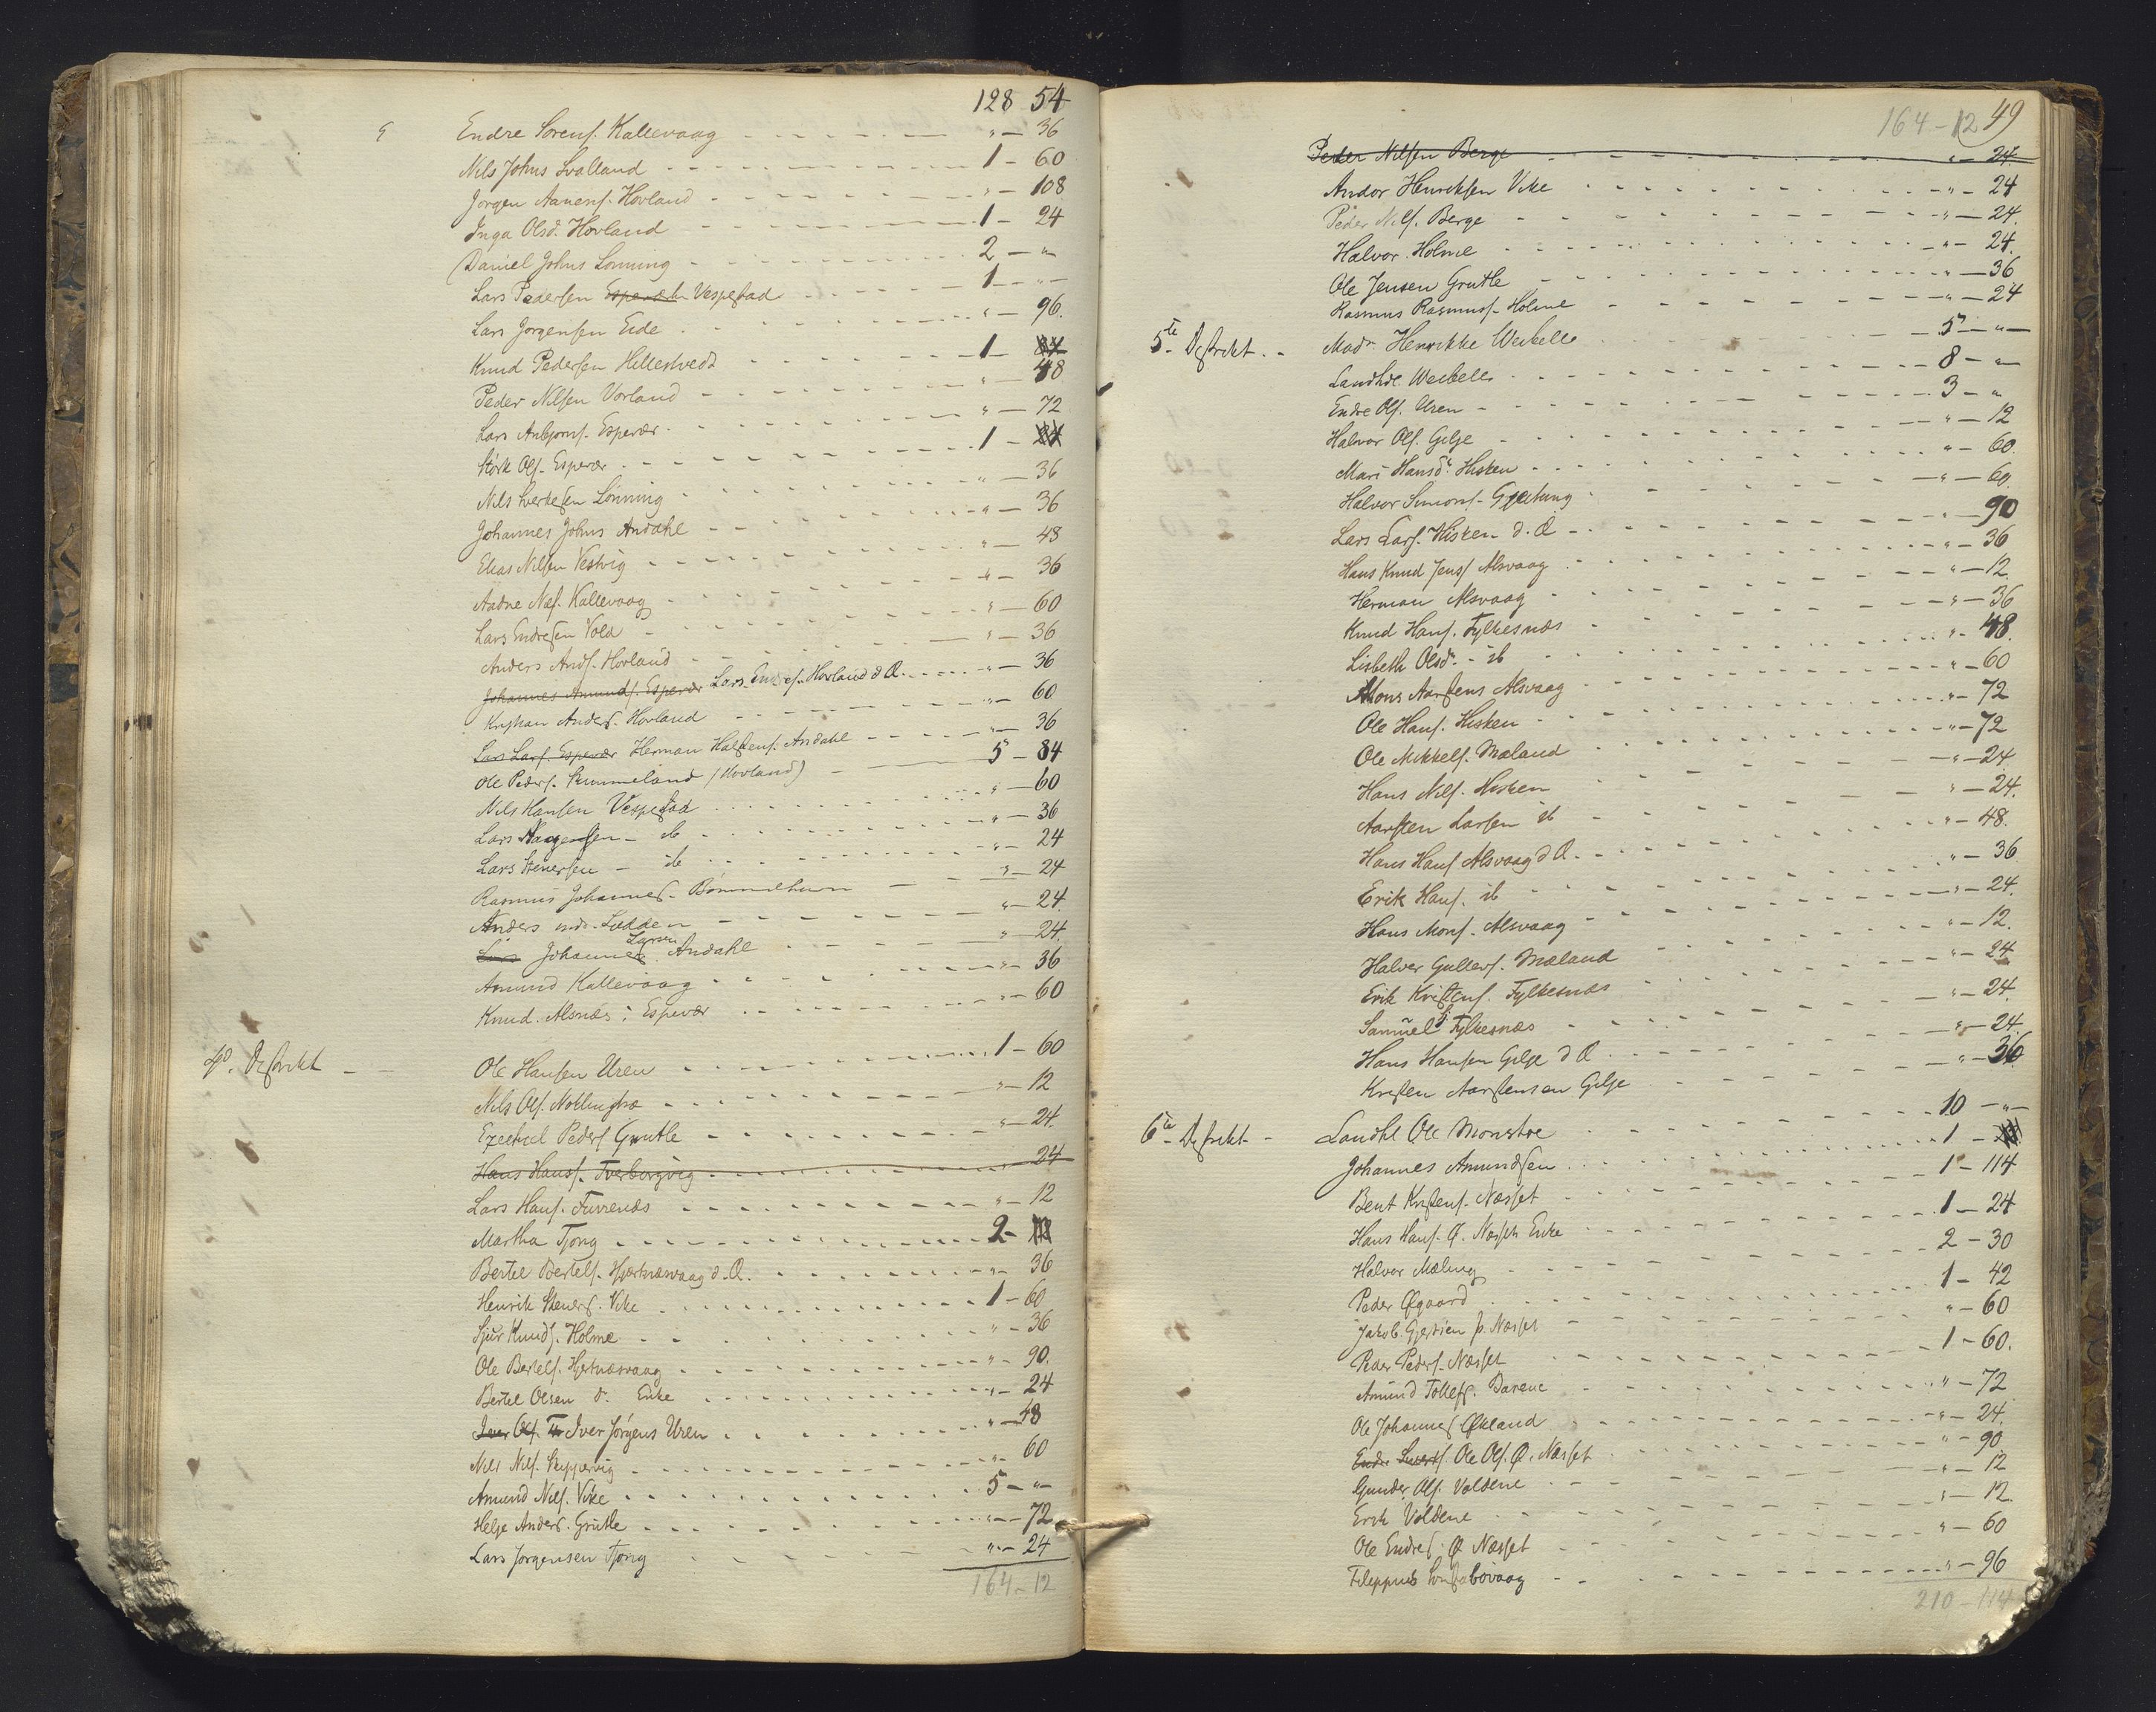 128 54
Endre Sörens. Kallevaag " - 36
Nils Johns Svalland 1 - 60
Jörgen Aanens. Hovland " - 108
Inga Olsd. Hovland 1 - 24
Daniel Johns Lönning 2 - "
Lars Pedersen Vespestad 1 - "
Lars Jörgensen Eide " - 96.
Knud Pedersen Hillestvedt 1 -
Peder Nilsen Vorland " - 48
Lars Anbjörns. Espevær " - 72
Störk Ols. Espevær 1 -
Nils Sverkesen Lönning " - 36
Johannes Johns Andahl " - 36
Elias Nilsen Vestvig " - 48
Aadne Nils. Kallevaag " - 36
Lars Endresen Vold " - 60
Anders Ands. Hovland " - 36
Johannes Amunds. Espevær Lars Endres. Hovland d. Æ. " - 36
Kristian Anders. Hovland " - 60
Lars Lars. Espevær Herman Halstens. Andahl " - 36
Ole Peders. Rummeland (Hovland) 5 - 84
Nils Hansen Vespestad " - 60
Lars Haagensen - ib " - 36
Lars Stenersen - ib " - 24
Rasmus Johannes. Bömmelhavn " - 24
Anders Lodden " - 24.
Lars Johannes Larsen Andahl " - 24.
Amund Kallevaag " - 36
Knud Alsnæs i Espevær " - 60
4de Distrikt
Ole Hansen Uren 1 - 60
Nils Ols. Moklingbræ " - 12
Ezechiel Peders Grutle " - 24.
Hans Hanss. Tverborgvig 24
Lars Hans. Furrenæs " - 12
Martha Tjong 2 -
Bertel Bertels. Hjertnæsvaag d. Æ. " - 36
Henrik Steners. Vike 1 - 60
Sjur Knuds. Holme " - 36
Ole Bertels. Hjertnæsvaag " - 90.
Bertel Olsen ds. Enke " - 24
Iver Ols. Iver Jörgens Uren " - 48
Nils Nils. Skippervig " - 60
Amund Nils. Vike 5 - "
Helge Anders. Grutle " - 72
Lars Jörgensen Tjong " - 24
164 - 12
164 - 12 49
Peder Nilsen Berge " - 24
Andor Henriksen Vike " - 24
Peder Nils. Berge " - 24.
Halvor Holme " - 24.
Ole Jensen Grutle " - 36
Rasmus Rasmuss. Holme " - 24
5te Distrikt. - Mads. Henrikke Weibelle 5 - "
Landhdl. Weibelle 8 - "
Endre Ols. Uren 3 - "
Halvor Ols. Gilje " - 12
Mari Hansdr. Hisken " - 60.
Halvor Simons. Gjeitung " - 60.
Lars Lars. Hisken d. Æ " - 90
Hans Knud Jens Alsvaag " - 36
Herman Alsvaag " - 12
Knud Hans. Fylkesnæs " - 36
Lisbeth Olsdr. - ib " - 48.
Mons Aarstens Alsvaag " - 60
Ole Hans. Hisken " - 72
Ole Mikkels. Mæland " - 72
Hans Nils. Hisken " - 24
Aarsten Larsen ib " - 24.
Hans Hans Alsvaag d Æ. " - 48.
Erik Hans. ib " - 36
Hans Mons. Alsvaag " - 24.
Halvor Gullevs. Mæland " - 12.
Erik Kristens. Fylkesnæs " - 24
Samuel S. Fylkesnæs " - 24.
Hans Hansen Gilje d Æ " - 24.
Kristen Aarstensen Gilje " - 36
6te Distrikt - Landhl Ole Monstre 10 - "
Johannes Amundsen 1 -
Bent Kristens. Næsset 1 - 114
Hans Hans. Ø. Næssets Enke 1 - 24
Halvor Mæling 2 - 30
Peder Øgaard 1 - 42
Jakob Gjertsen p. Næsset " - 60
Peder Peders. Næsset 1 - 60.
Amund Tollefs. Davene " - 72
Ole Johannes Økland " - 24.
Endre Ole Ols. Ø. Næsset " - 90
Gunder Ols. Voldene " - 12
Erik Voldene " - 12.
Ole Endres. Ø Næsset " - 60
Filippus Sortabövaag " - 96
210 - 114